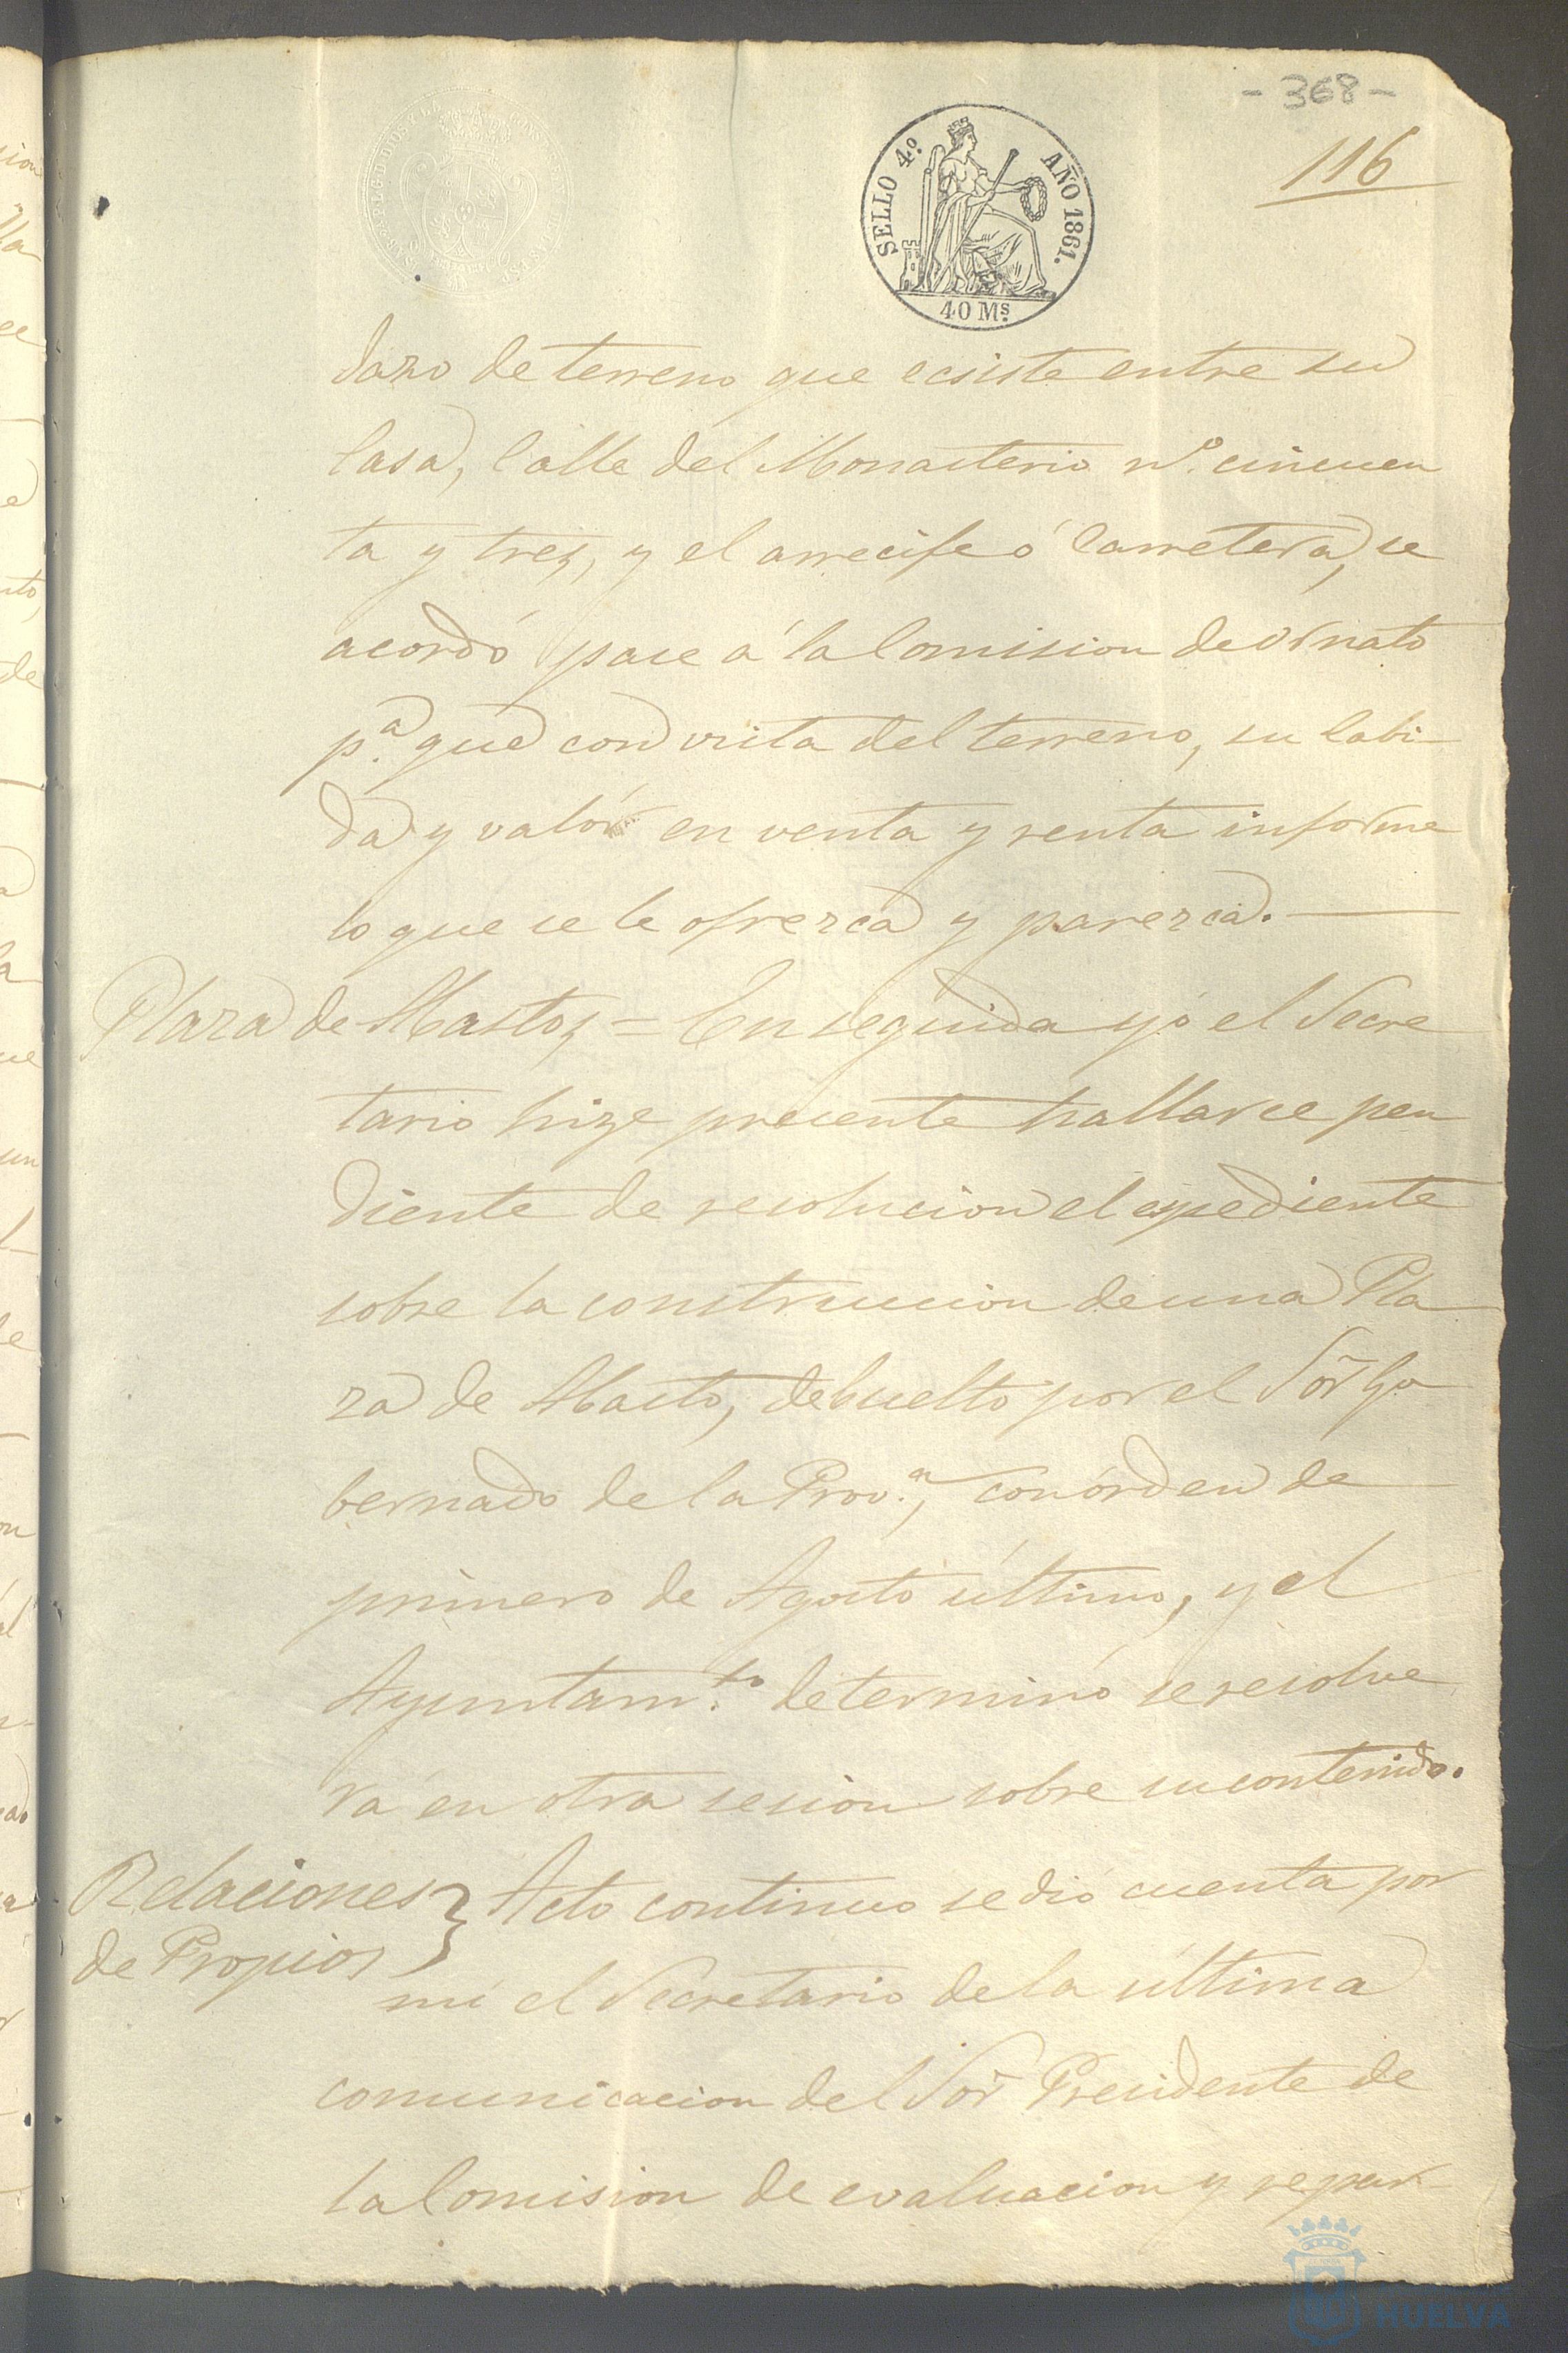 - 368 -
116
SELLO 4.º AÑO 1861.
40 Ms.
dazo de terreno que ecsiste entre su
Casa, Calle del Monasterio nº. cincuen
ta y tres, y el arrecife ó Carretera, se
acordó pase á la Comision de Ornato
p.ª que con vista del terreno, su cabi-
da y valór en venta y renta informe
lo que se le ofrezca y parezca.
Plaza de Abastos = En seguida yó el Secre
tario hize presente hallarse pen
diente de resolucion el espediente
sobre la construccion de una Pla
za de Abasto, debuelto por el Sõr Go
bernado de la Prov.ª, con órden de
primero de Agosto último, y el
Ayuntam.to determinó se resolve
rá en otra sesion sobre su contenido.
Relaciones de Propios } Acto continuo se dió cuenta por
mi el Secretario de la última
comunicacion del Sõr Presidente de
la Comision de evaluacion y repar-
HUELVA